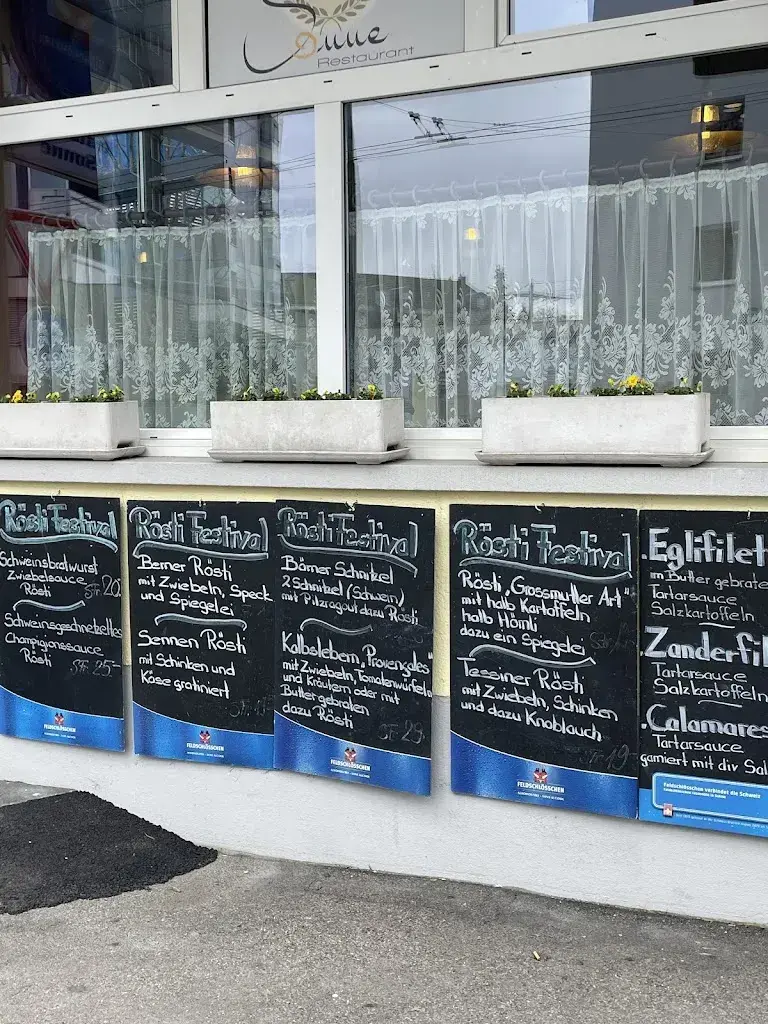 Sonne
Restaurant
Rösti Festival
Schweinsbratwurst
Zwiebelsauce
Rösti
Sfr. 20
Schweinsgeschnetzeltes
Champignonssauce
Rösti
Sfr. 25.-
FELDSCHLÖSSCHEN
Rösti Festival
Berner Rösti
mit Zwiebeln, Speck
und Spiegelei
Sennen Rösti
mit Schinken und
Käse gratiniert
FELDSCHLÖSSCHEN
Rösti Festival
Börner Schnitzel
2 Schnitzel (Schwein)
mit Pilzragout dazu Rösti
Kalbslebern "Provençales"
mit Zwiebeln, Tomatenwürfeln
und Kräutern oder mit
Butter gebraten
dazu Rösti
Sfr. 29.-
FELDSCHLÖSSCHEN
Rösti Festival
Rösti "Grossmutter Art"
mit halb Kartoffeln
halb Hörnli
dazu ein Spiegelei
Tessiner Rösti
mit Zwiebeln, Schinken
und dazu Knoblauch
Sfr. 19
FELDSCHLÖSSCHEN
Eglifilet
im Butter gebraten
Tartarsauce
Salzkartoffeln
Zanderfil
Tartarsauce
Salzkartoffeln
Calamares
Tartarsauce
garniert mit div Sal
Feldschlösschen verbindet die Schweiz